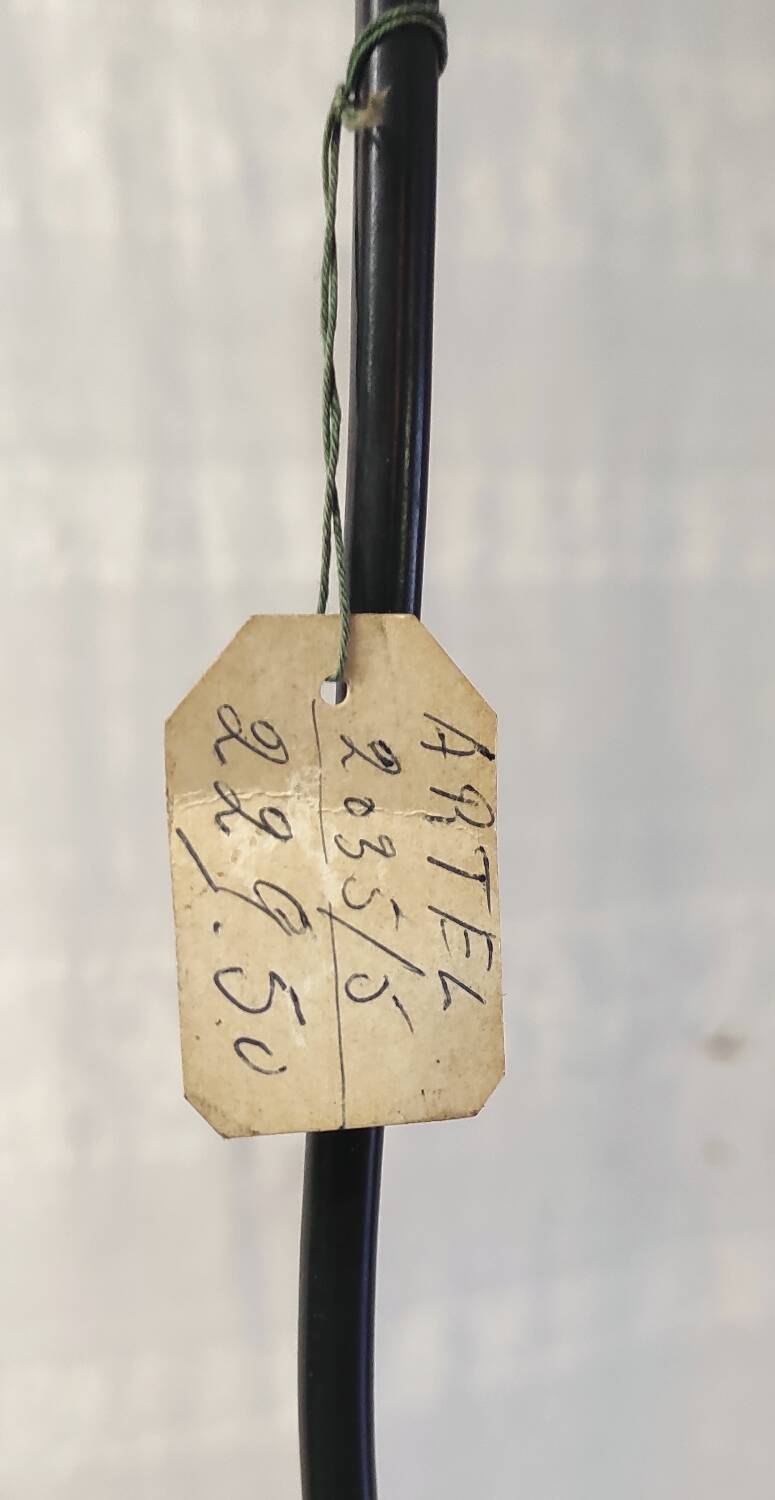 ARTEL
2035/5
229.50